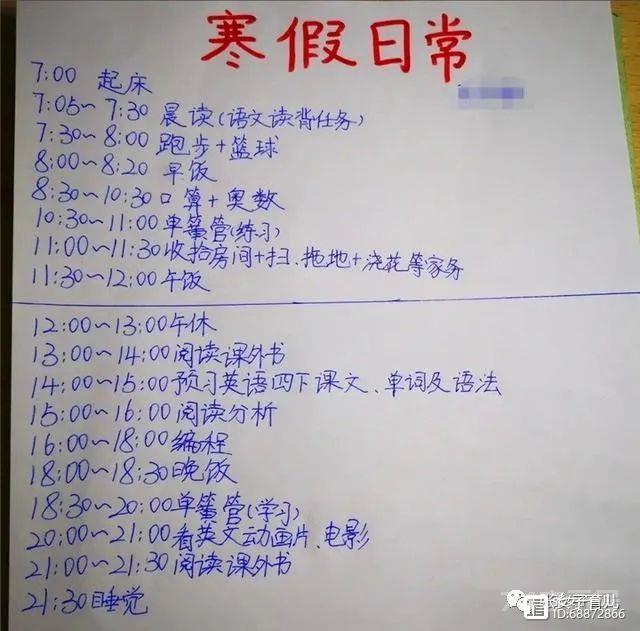 寒假日常
7:00 起床
7:05~7:30 晨读(语文读背任务)
7:30~8:00 跑步+篮球
8:00~8:20 早饭
8:30~10:30 口算+奥数
10:30~11:00 单簧管(练习)
11:00~11:30 收拾房间+扫、拖地+浇花等家务
11:30~12:00 午饭
12:00~13:00 午休
13:00~14:00 阅读课外书
14:00~15:00 预习英语四下课文、单词及语法
15:00~16:00 阅读分析
16:00~18:00 编程
18:00~18:30 晚饭
18:30~20:00 单簧管(学习)
20:00~21:00 看英文动画片、电影
21:00~21:30 阅读课外书
21:30 睡觉
ID:68872866